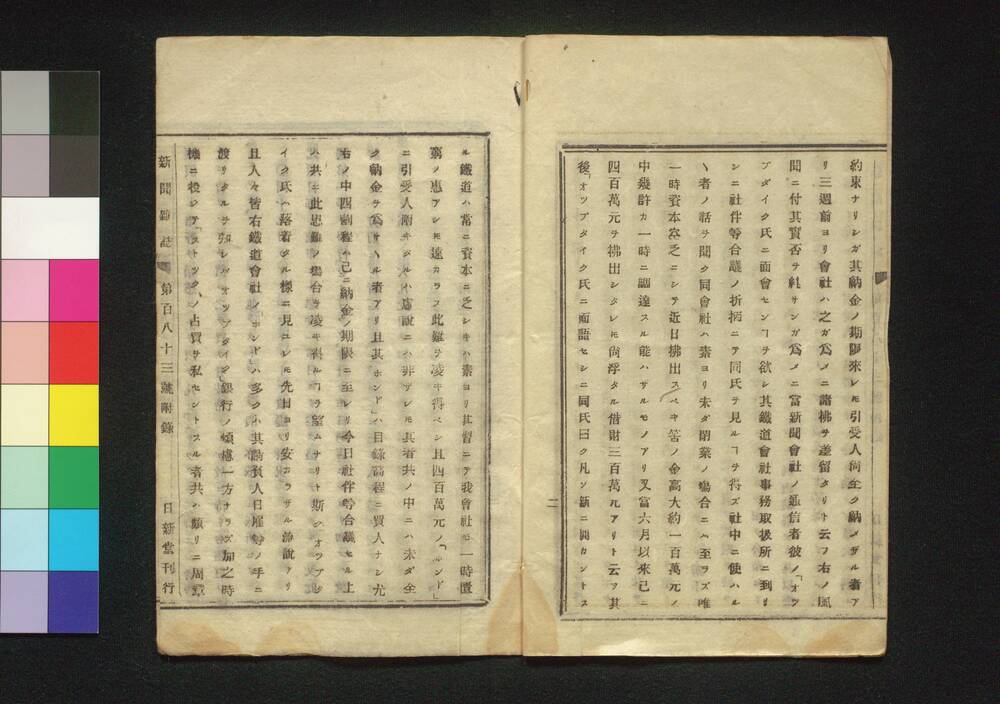 約束ナリシガ其納金ノ期限來レ𪜈引受人尚全ク納メザル者ア
リ三週前ヨリ會社ハ之ガ爲メニ諸拂ヲ差留タリト云フ右ノ風
聞ニ付其實否ヲ糺サンガ爲メニ當新聞會社ノ通信者彼ノ「オツ
プダイク氏ニ面會センヿヲ欲シ其鐵道會社事務取扱所ニ到リ
シニ社伴等合議ノ折柄ニテ同氏ヲ見ルヿヲ得ズ社中ニ使ハル
ヽ者ノ話ヲ聞ク同會社ハ素ヨリ未ダ閉業ノ塲合ニハ至ラズ唯
一時資本空乏ニシテ近日拂出スベキ筈ノ金高大約一百萬元ノ
中幾許カ一時ニ調達スル能ハザルモノアリ又當六月以來已ニ
四百萬元ヲ拂出シタレ𪜈尚浮タル借財三百萬元アリト云フ其
後「オツプダイク氏ニ面語セシニ同氏曰ク凡ソ新ニ開カントス
ル鐵道ハ常ニ資本ニ乏シキハ素ヨリ其習ニテ我會社モ一時置
窮ノ患アレ𪜈速カラフ此難ヲ凌キ得ベシ且四百萬元ノ「ボンド」
ニ引受人剛キガルハ虛說ニハ非ザレ𪜈其者共ノ中ニハ未ダ全
ク納金ヲ爲サヽル者アリ且其「ボンド」ハ目錄高程ニ買人ナシ尤
右ノ中四割程ハ已ニ納金ノ期限ニ至レリ今日社伴等合議セル上
ハ共ニ此患難ノ塲合ヲ凌キ得ルヿヲ望ムナリト斯ク「オツプダ
イク氏ハ落着タル樣ニ見ユレ𪜈先日ヨリ安カラザル諸說アリ
且人々皆右鐵道會社ノ「ボンド」ハ多クハ其請負人日雇等ノ手ニ
渡リタルヲ知レバ「オツプダイク」銀行ノ煩慮一方ナラズ加之時
機ニ投シテ「ストツク」ノ占買ヲ私セントスル者共ハ頻リニ周章
新聞雜誌 第百八十三號附錄 日新堂刊行
二